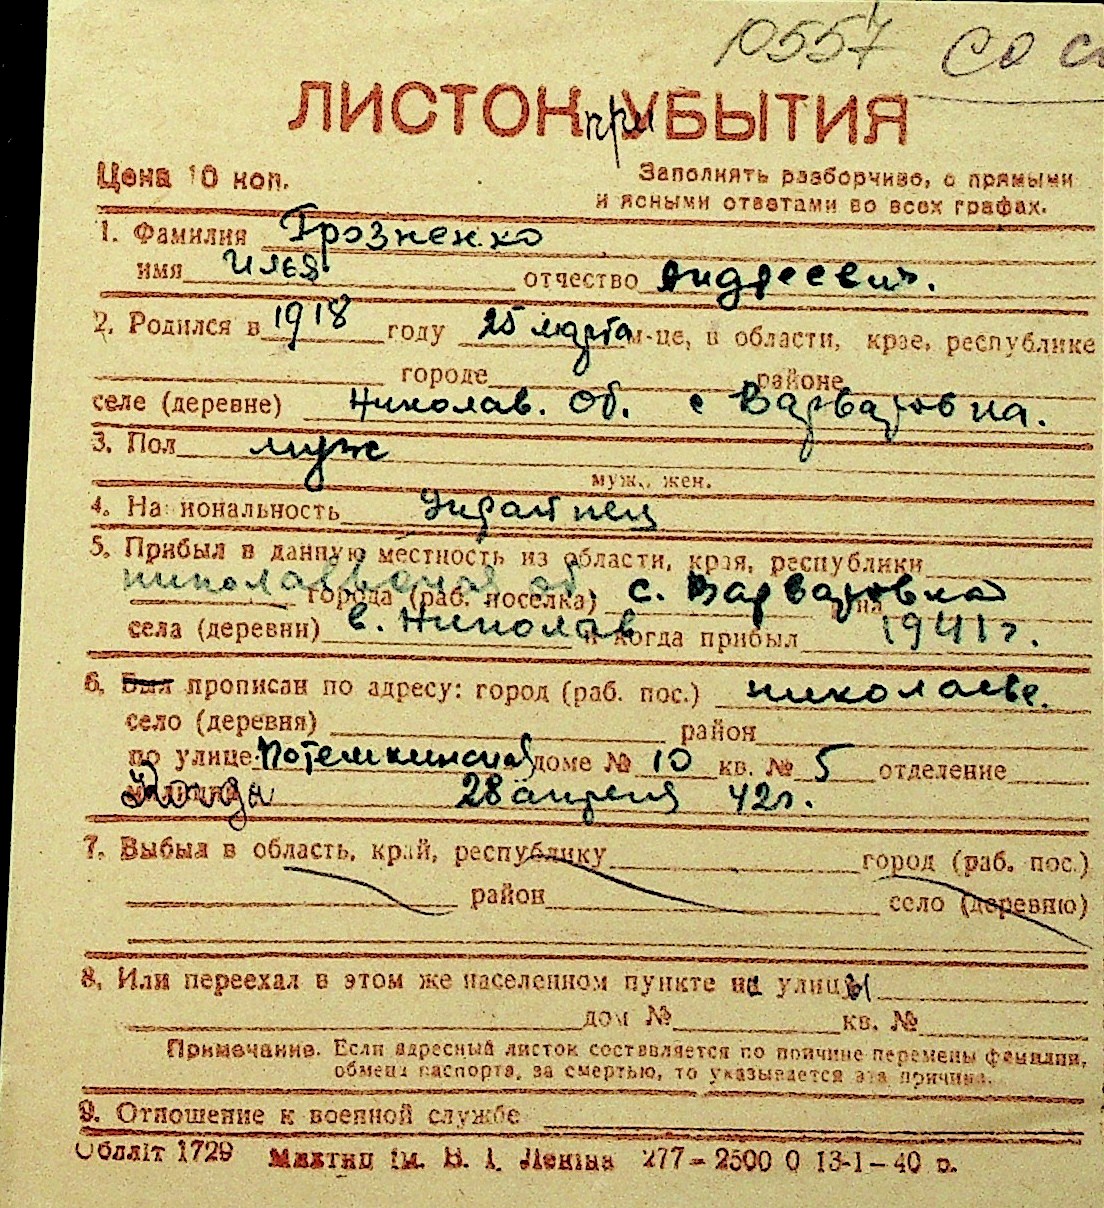 10557 СО
ЛИСТОК при УБЫТИЯ
Цена 10 коп.
Заполнять разборчиво, с прямыми
и ясными ответами во всех графах.
1. Фамилия Грозненко
имя Илья отчество Андреевич.
2. Родился в 1918 году 25 марта м-це, в области, крае, республике
городе районе
селе (деревне) Николав. об. с Варваровка.
3. Пол муж
муж., жен.
4. Национальность Украинец
5. Прибыл в данную местность из области, края, республики
николаевской об города (раб. поселка) с. Варваровка на
села (деревни) в. Николав и когда прибыл 1941 г.
6. Был прописан по адресу: город (раб. пос.) николаеве.
село (деревня) район
по улице Потемкинская доме № 10 кв. № 5 отделение
милиции 28 апреля 42 г.
7. Выбыл в область, край, республику город (раб. пос.)
район село (деревню)
8. Или переехал в этом же населенном пункте на улицы
дом № кв. №
Примечание. Если адресный листок составляется по причине перемены фамилии,
обмена паспорта, за смертью, то указывается эта причина.
9. Отношение к военной службе
Обллiт 1729 Миктип iм. В. I. Ленiна 277-2500 0 13-1-40 р.